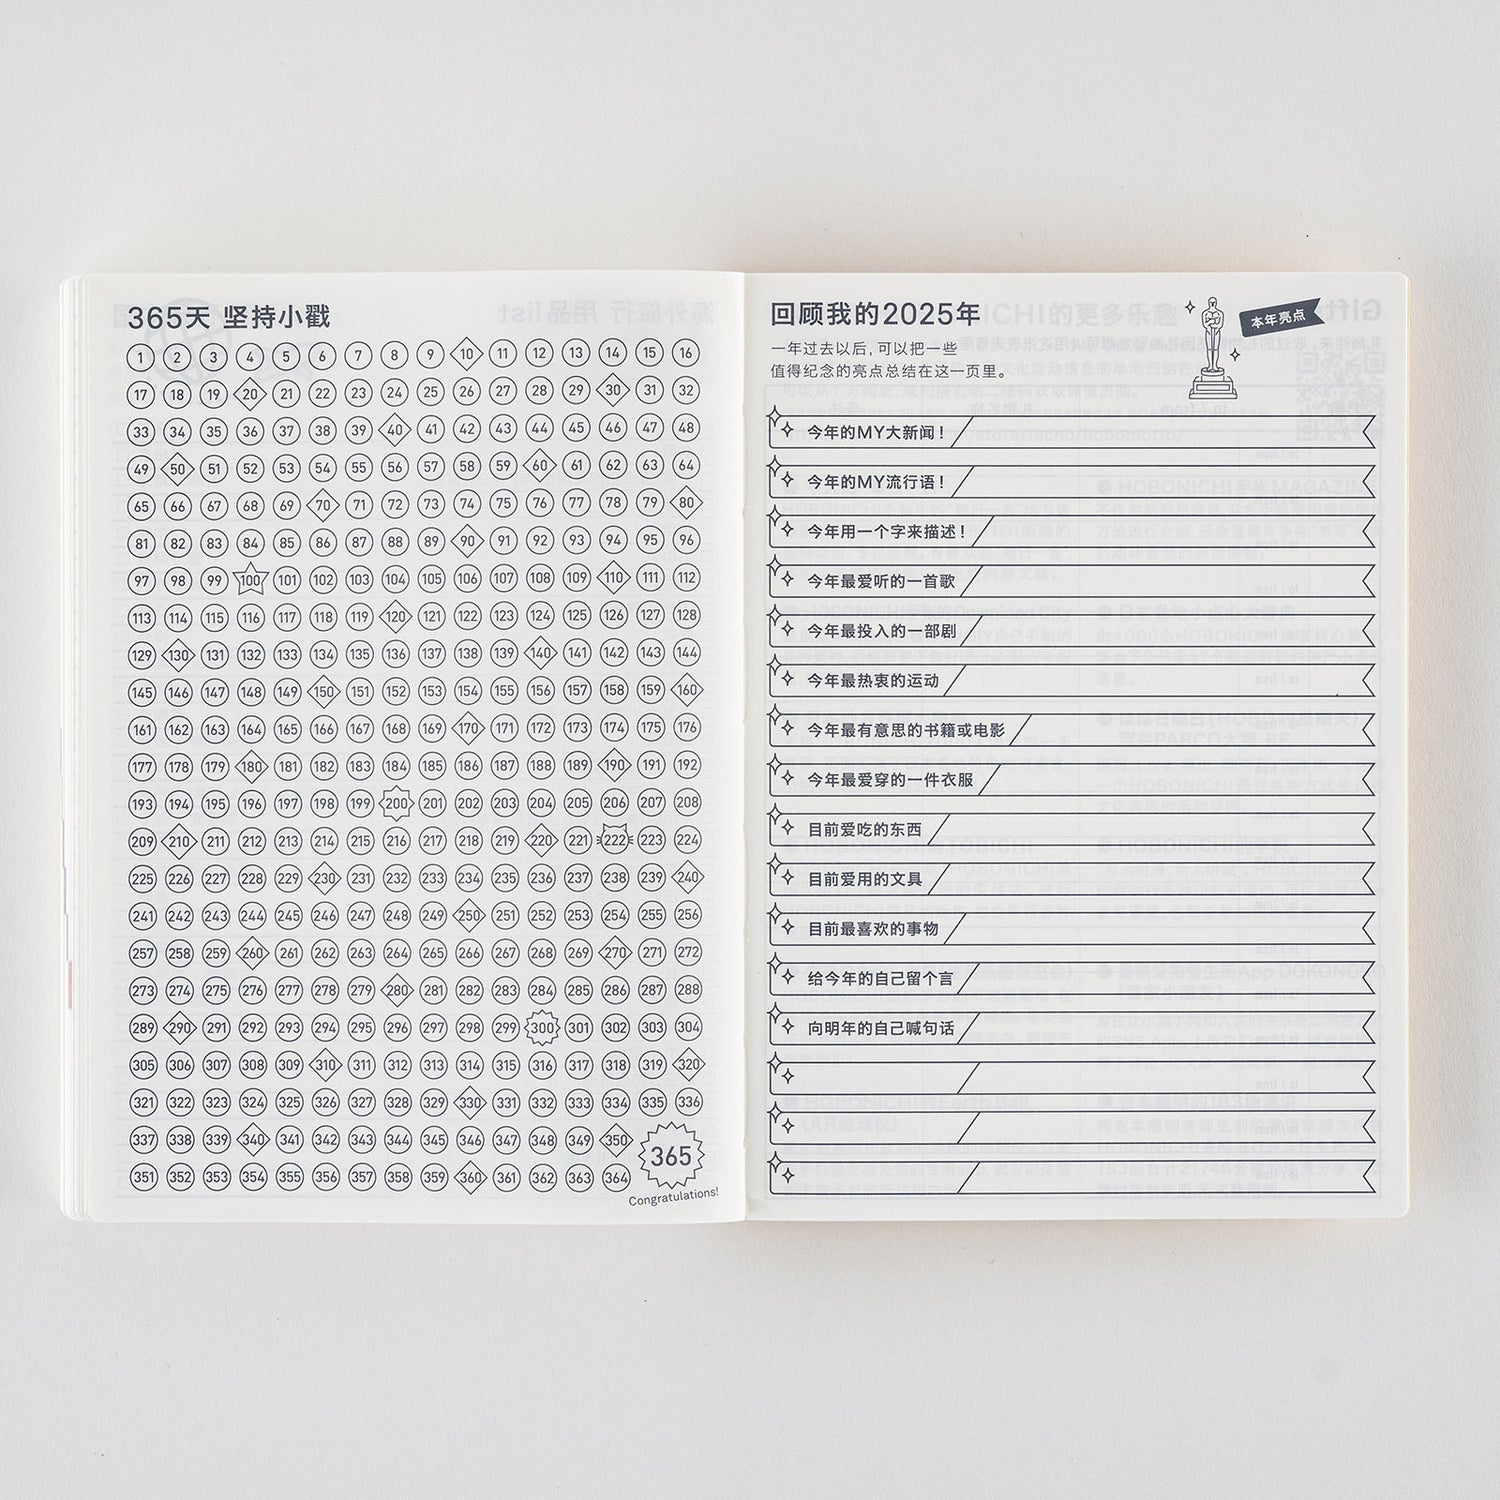 365天 坚持小戳
1 2 3 4 5 6 7 8 9 10 11 12 13 14 15 16
17 18 19 20 21 22 23 24 25 26 27 28 29 30 31 32
33 34 35 36 37 38 39 40 41 42 43 44 45 46 47 48
49 50 51 52 53 54 55 56 57 58 59 60 61 62 63 64
65 66 67 68 69 70 71 72 73 74 75 76 77 78 79 80
81 82 83 84 85 86 87 88 89 90 91 92 93 94 95 96
97 98 99 100 101 102 103 104 105 106 107 108 109 110 111 112
113 114 115 116 117 118 119 120 121 122 123 124 125 126 127 128
129 130 131 132 133 134 135 136 137 138 139 140 141 142 143 144
145 146 147 148 149 150 151 152 153 154 155 156 157 158 159 160
161 162 163 164 165 166 167 168 169 170 171 172 173 174 175 176
177 178 179 180 181 182 183 184 185 186 187 188 189 190 191 192
193 194 195 196 197 198 199 200 201 202 203 204 205 206 207 208
209 210 211 212 213 214 215 216 217 218 219 220 221 222 223 224
225 226 227 228 229 230 231 232 233 234 235 236 237 238 239 240
241 242 243 244 245 246 247 248 249 250 251 252 253 254 255 256
257 258 259 260 261 262 263 264 265 266 267 268 269 270 271 272
273 274 275 276 277 278 279 280 281 282 283 284 285 286 287 288
289 290 291 292 293 294 295 296 297 298 299 300 301 302 303 304
305 306 307 308 309 310 311 312 313 314 315 316 317 318 319 320
321 322 323 324 325 326 327 328 329 330 331 332 333 334 335 336
337 338 339 340 341 342 343 344 345 346 347 348 349 350
351 352 353 354 355 356 357 358 359 360 361 362 363 364 365
Congratulations!
回顾我的2025年
本年亮点
一年过去以后,可以把一些
值得纪念的亮点总结在这一页里。
今年的MY大新闻!
今年的MY流行语!
今年用一个字来描述!
今年最爱听的一首歌
今年最投入的一部剧
今年最热衷的运动
今年最有意思的书籍或电影
今年最爱穿的一件衣服
目前爱吃的东西
目前爱用的文具
目前最喜欢的事物
给今年的自己留个言
向明年的自己喊句话